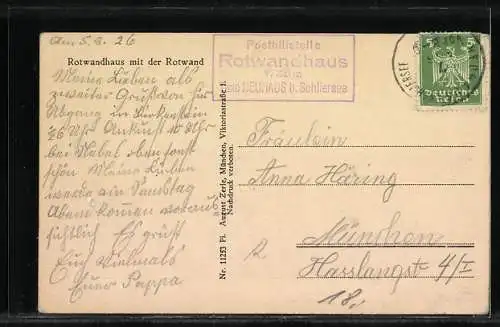 Am 5.8.26
Rotwandhaus mit der Rotwand
Meine Lieben als
zweiter Grüß von
Abgang in
Uhr Ankunft 10 Uhr
bei Nebel oben sonst
schön Meine Lieben
werde am Samstag
Abend komen voraus
sichtlich Es grüßt
Euch vielmals
Euer Pappa
Nr. 11253 Pl. August Zerle, München, Viktoriastraße 1.
Nachdruck verboten.
Posthilfstelle
Rotwandhaus
NEUHAUS b. Schliersee
5
Deutsches
Reich
Fräulein
Anna Häring
München
Hasslangstr 4/I
18.